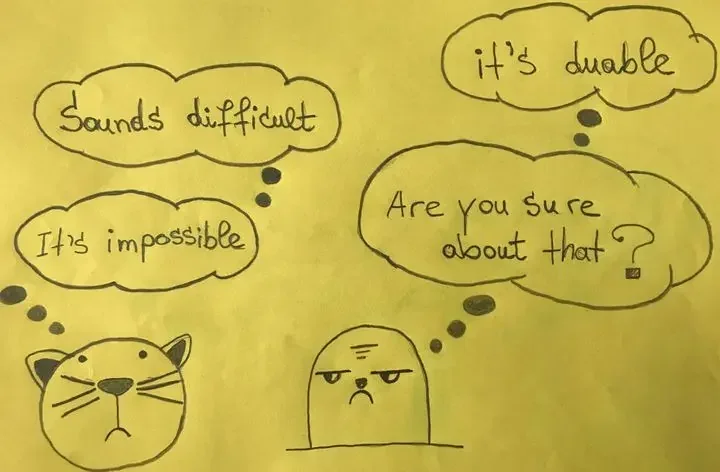 it's duable
Sounds difficult
It's impossible
Are you sure
about that?